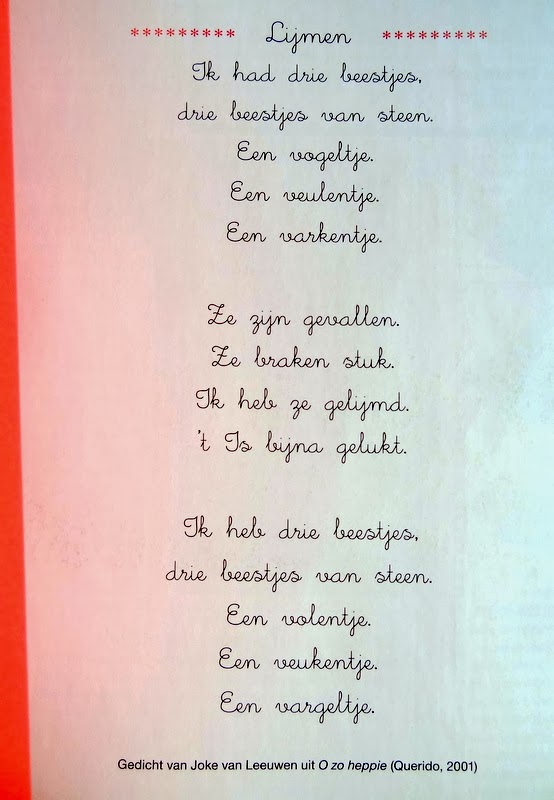 ********* Lijmen *********
Ik had drie beestjes,
drie beestjes van steen.
Een vogeltje.
Een veulentje.
Een varkentje.
Ze zijn gevallen.
Ze braken stuk.
Ik heb ze gelijmd.
't Is bijna gelukt.
Ik heb drie beestjes,
drie beestjes van steen.
Een volentje.
Een veukentje.
Een vargeltje.
Gedicht van Joke van Leeuwen uit O zo heppie (Querido, 2001)